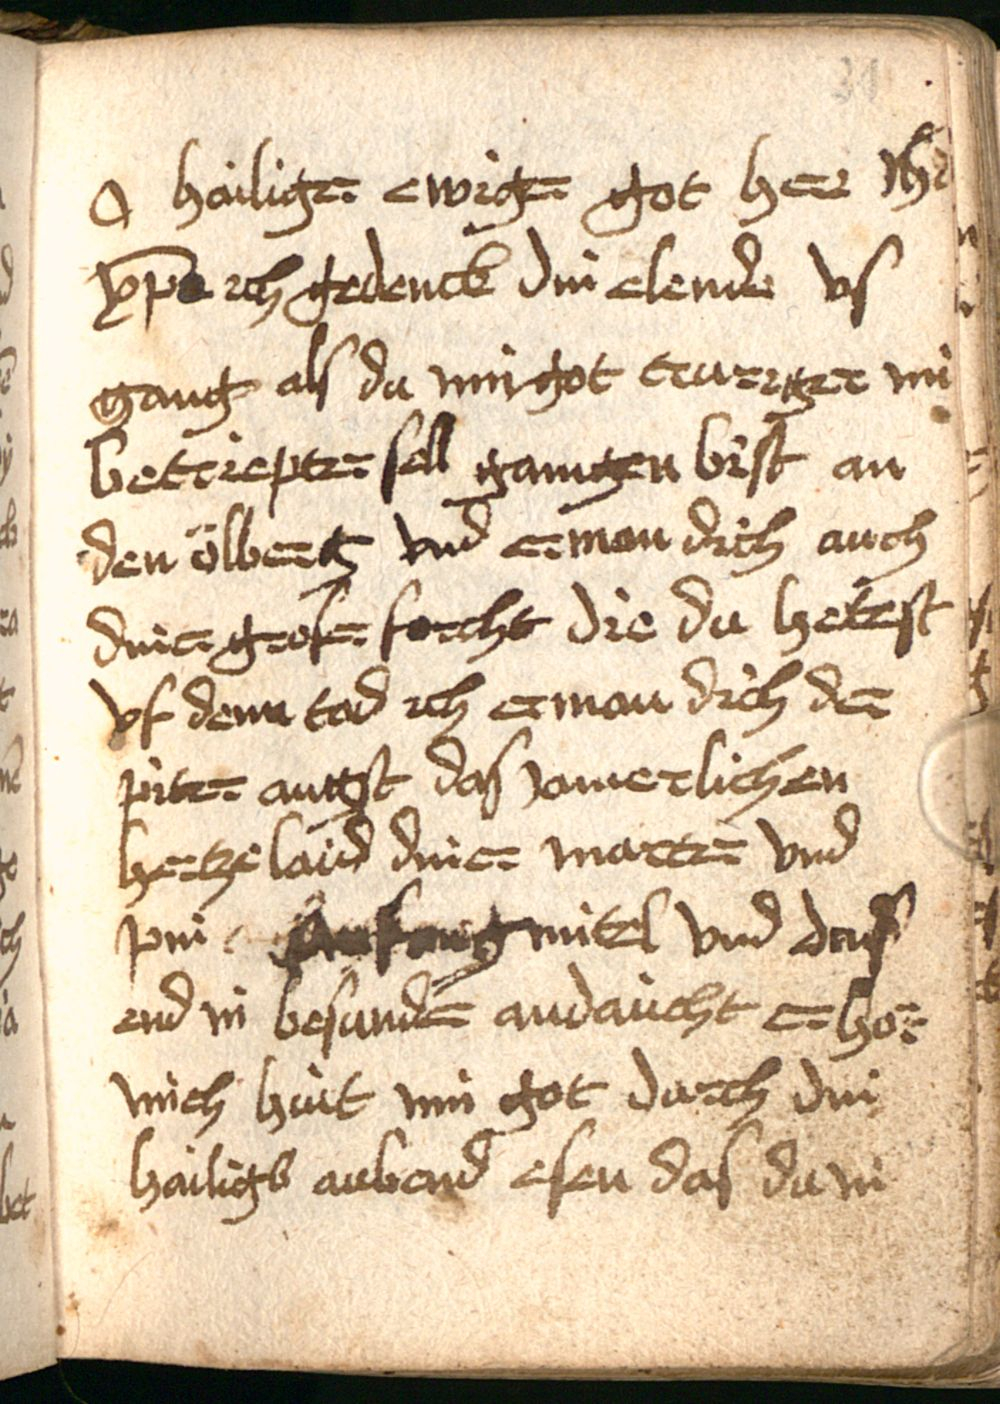 31
O hailiger ewiger got her Jhu
xpe ich gedenck din elende us
gang als da min got trureger mit
betriepter sell gangen bist an
den ölberg und erman dich auch
diner groser forcht die du hetest
uf denn tod ich erman dich der
piter angst das jamerlichen
hertze laid diner marter und
pin anfang mitel und das
end in besunder andaucht erhor
mich hüt min got durch din
hailigs aubend esen das du in